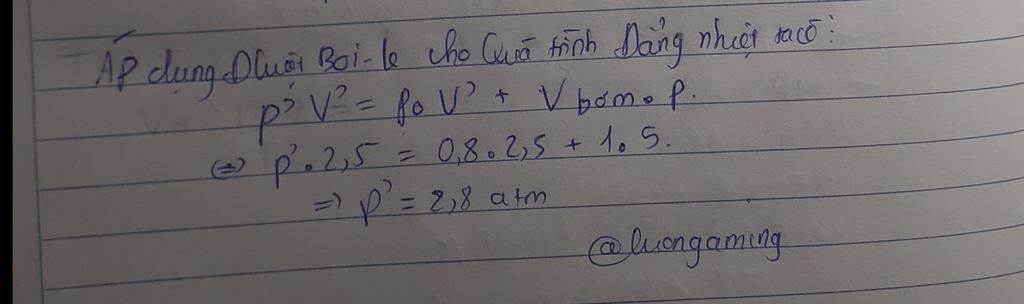 Áp dụng Đluật Boi-lơ cho Quá trình Đẳng nhiệt ta có:
p' V' = p₀ V' + V bơm . p.
⇔ p' . 2,5 = 0,8 . 2,5 + 1 . 5.
⇒ p' = 2,8 atm
@luongaming